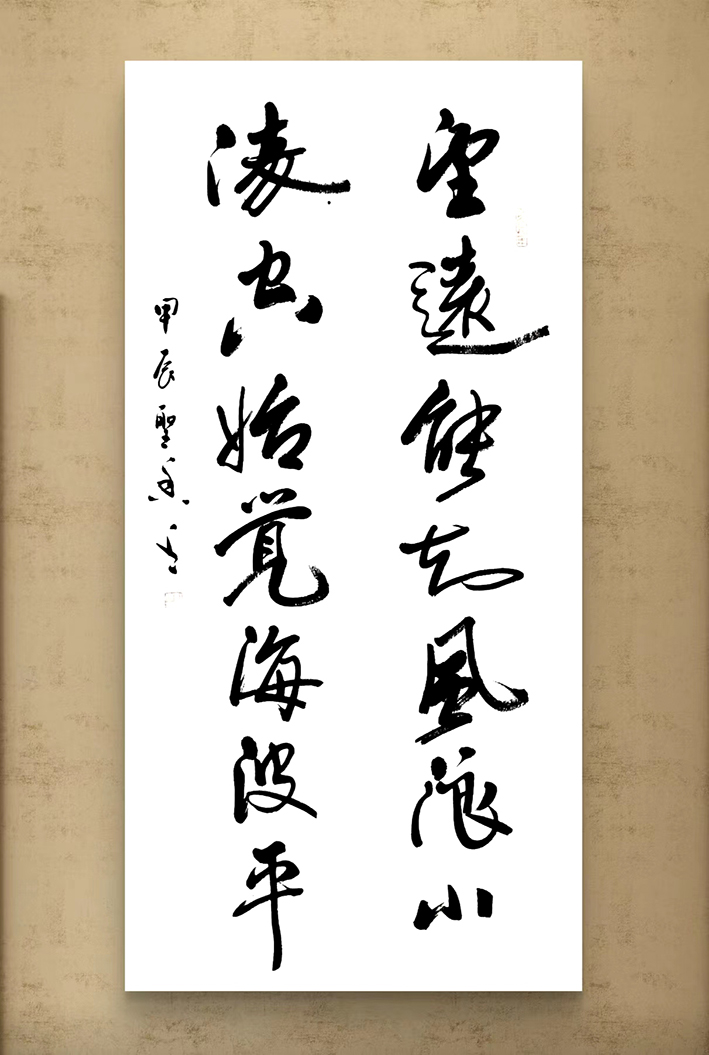 望遠能知風浪小
凌空始覺海波平
甲辰聖